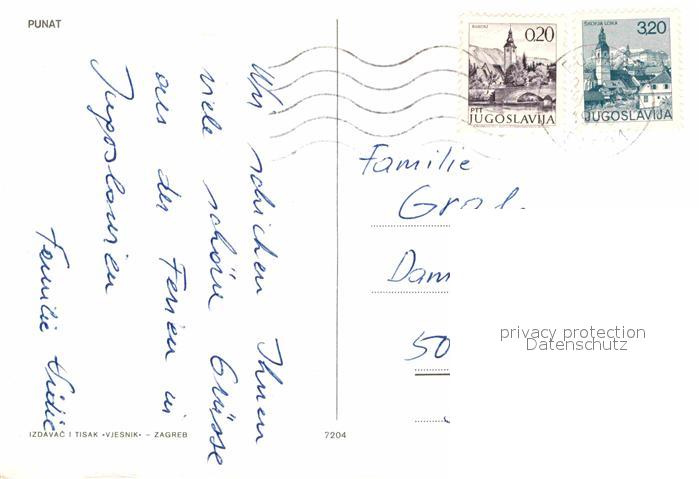 PUNAT
Wir schicken Ihnen
viele schöne Grüsse
aus den Ferien in
Jugoslawien
Familie
IZDAVAČ I TISAK »VJESNIK« – ZAGREB
7204
BOHINJ
0,20
PTT
JUGOSLAVIJA
ŠKOFJA LOKA
3,20
JUGOSLAVIJA
Familie
Dam
50
privacy protection
Datenschutz